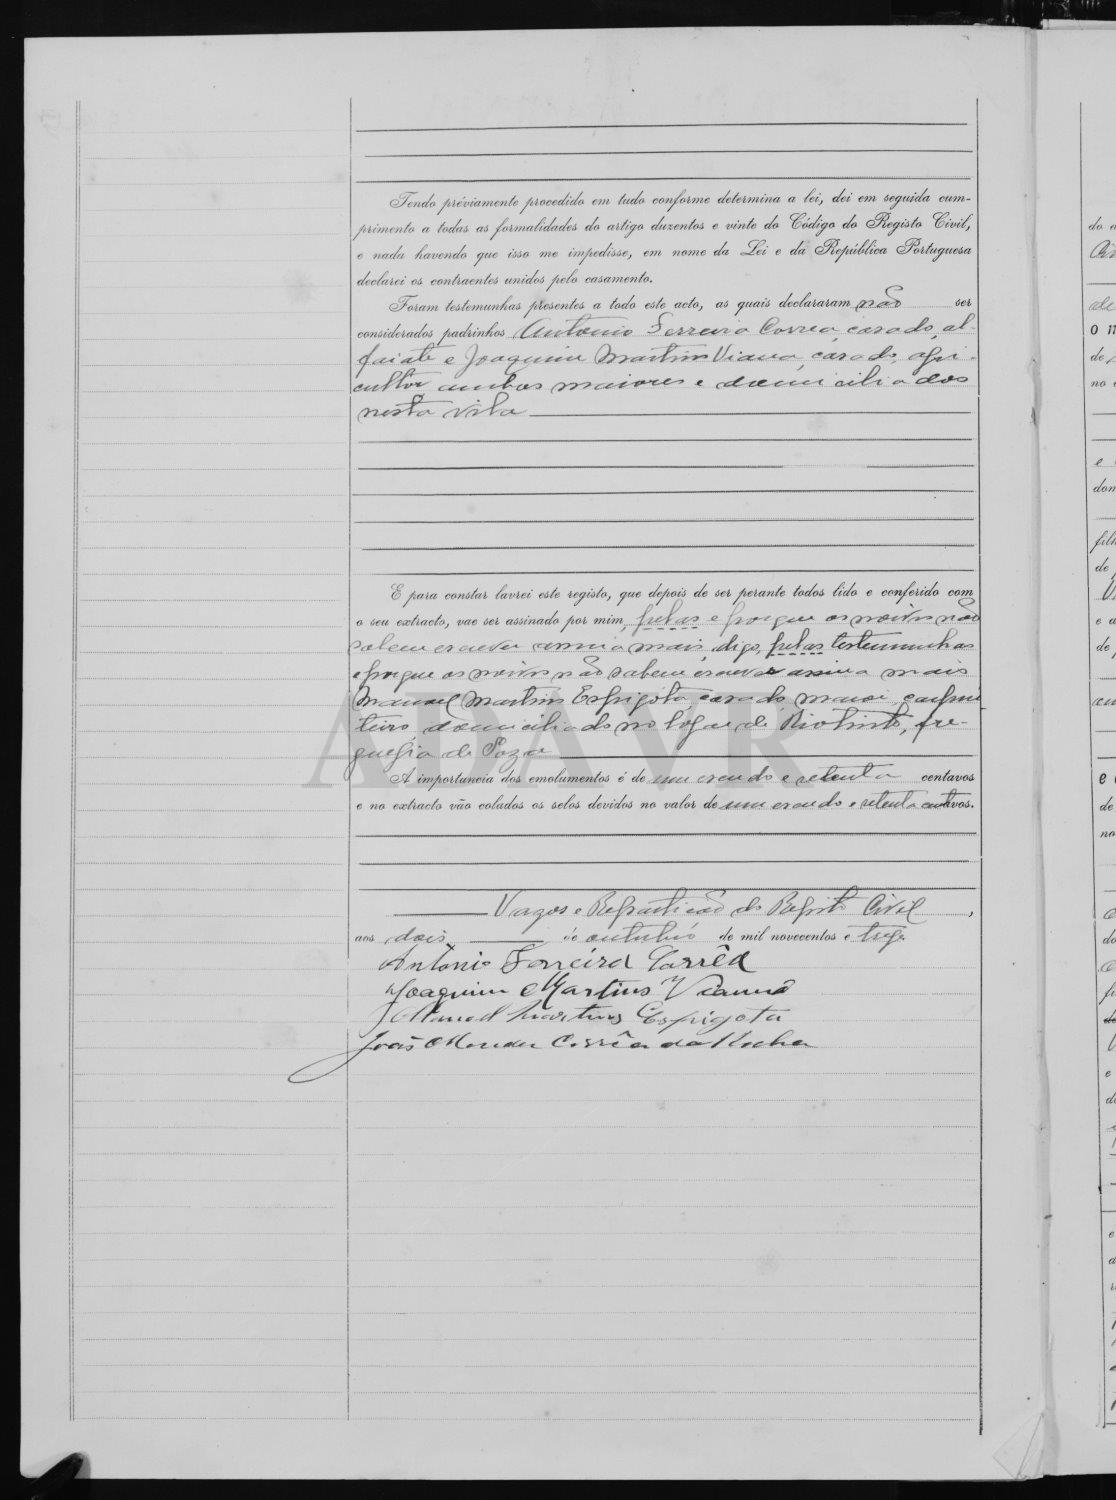 Tendo préviamente procedido em tudo conforme determina a lei, dei em seguida cum-
primento a todas as formalidades do artigo duzentos e vinte do Código do Registo Civil,
e nada havendo que isso me impedisse, em nome da Lei e da República Portuguesa
declarei os contraentes unidos pelo casamento.
Foram testemunhas presentes a todo este acto, as quais declararam não ser
considerados padrinhos Antonio Ferreira Correa, casado, al-
faiate e Joaquim Martins Viana, casado, agri-
cultor ambos maiores e domiciliados
nesta vila
E para constar lavrei este registo, que depois de ser perante todos lido e conferido com
o seu extracto, vae ser assinado por mim, pelas e porque os noivos não
sabem escrever assina mais, digo, pelas testemunhas
e porque os noivos não sabem escrever assina mais
Manuel Martins Espigota, casado, maior, carpin
teiro, domiciliado no logar de Rio tinto, fre-
guesia de Soza
A importancia dos emolumentos é de um escudo e setenta centavos
e no extracto vão colados os selos devidos no valor de um escudo e setenta centavos.
Vagos e Repartição do Registo Civil,
aos dois de outubro de mil novecentos e treze
António Ferreira Corrêa
Joaquim Martins Vianna
Manuel Martins Espigota
João Mendes Corrêa da Rocha
ADAVR